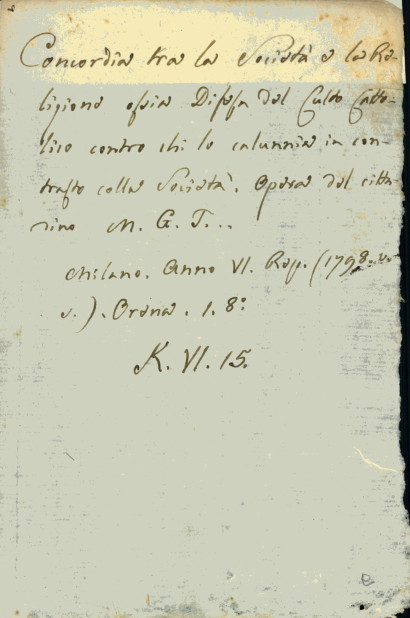 Concordia tra la Società e la Re-
ligione ossia Difesa del Culto Catto-
lico contro chi lo calunnia in con-
trasto colla Società. Opera del citta-
dino M. G. T...
Milano. Anno VI. Rep. (1798. v.
s.). Orena. 1. 8°
K. VI. 15.